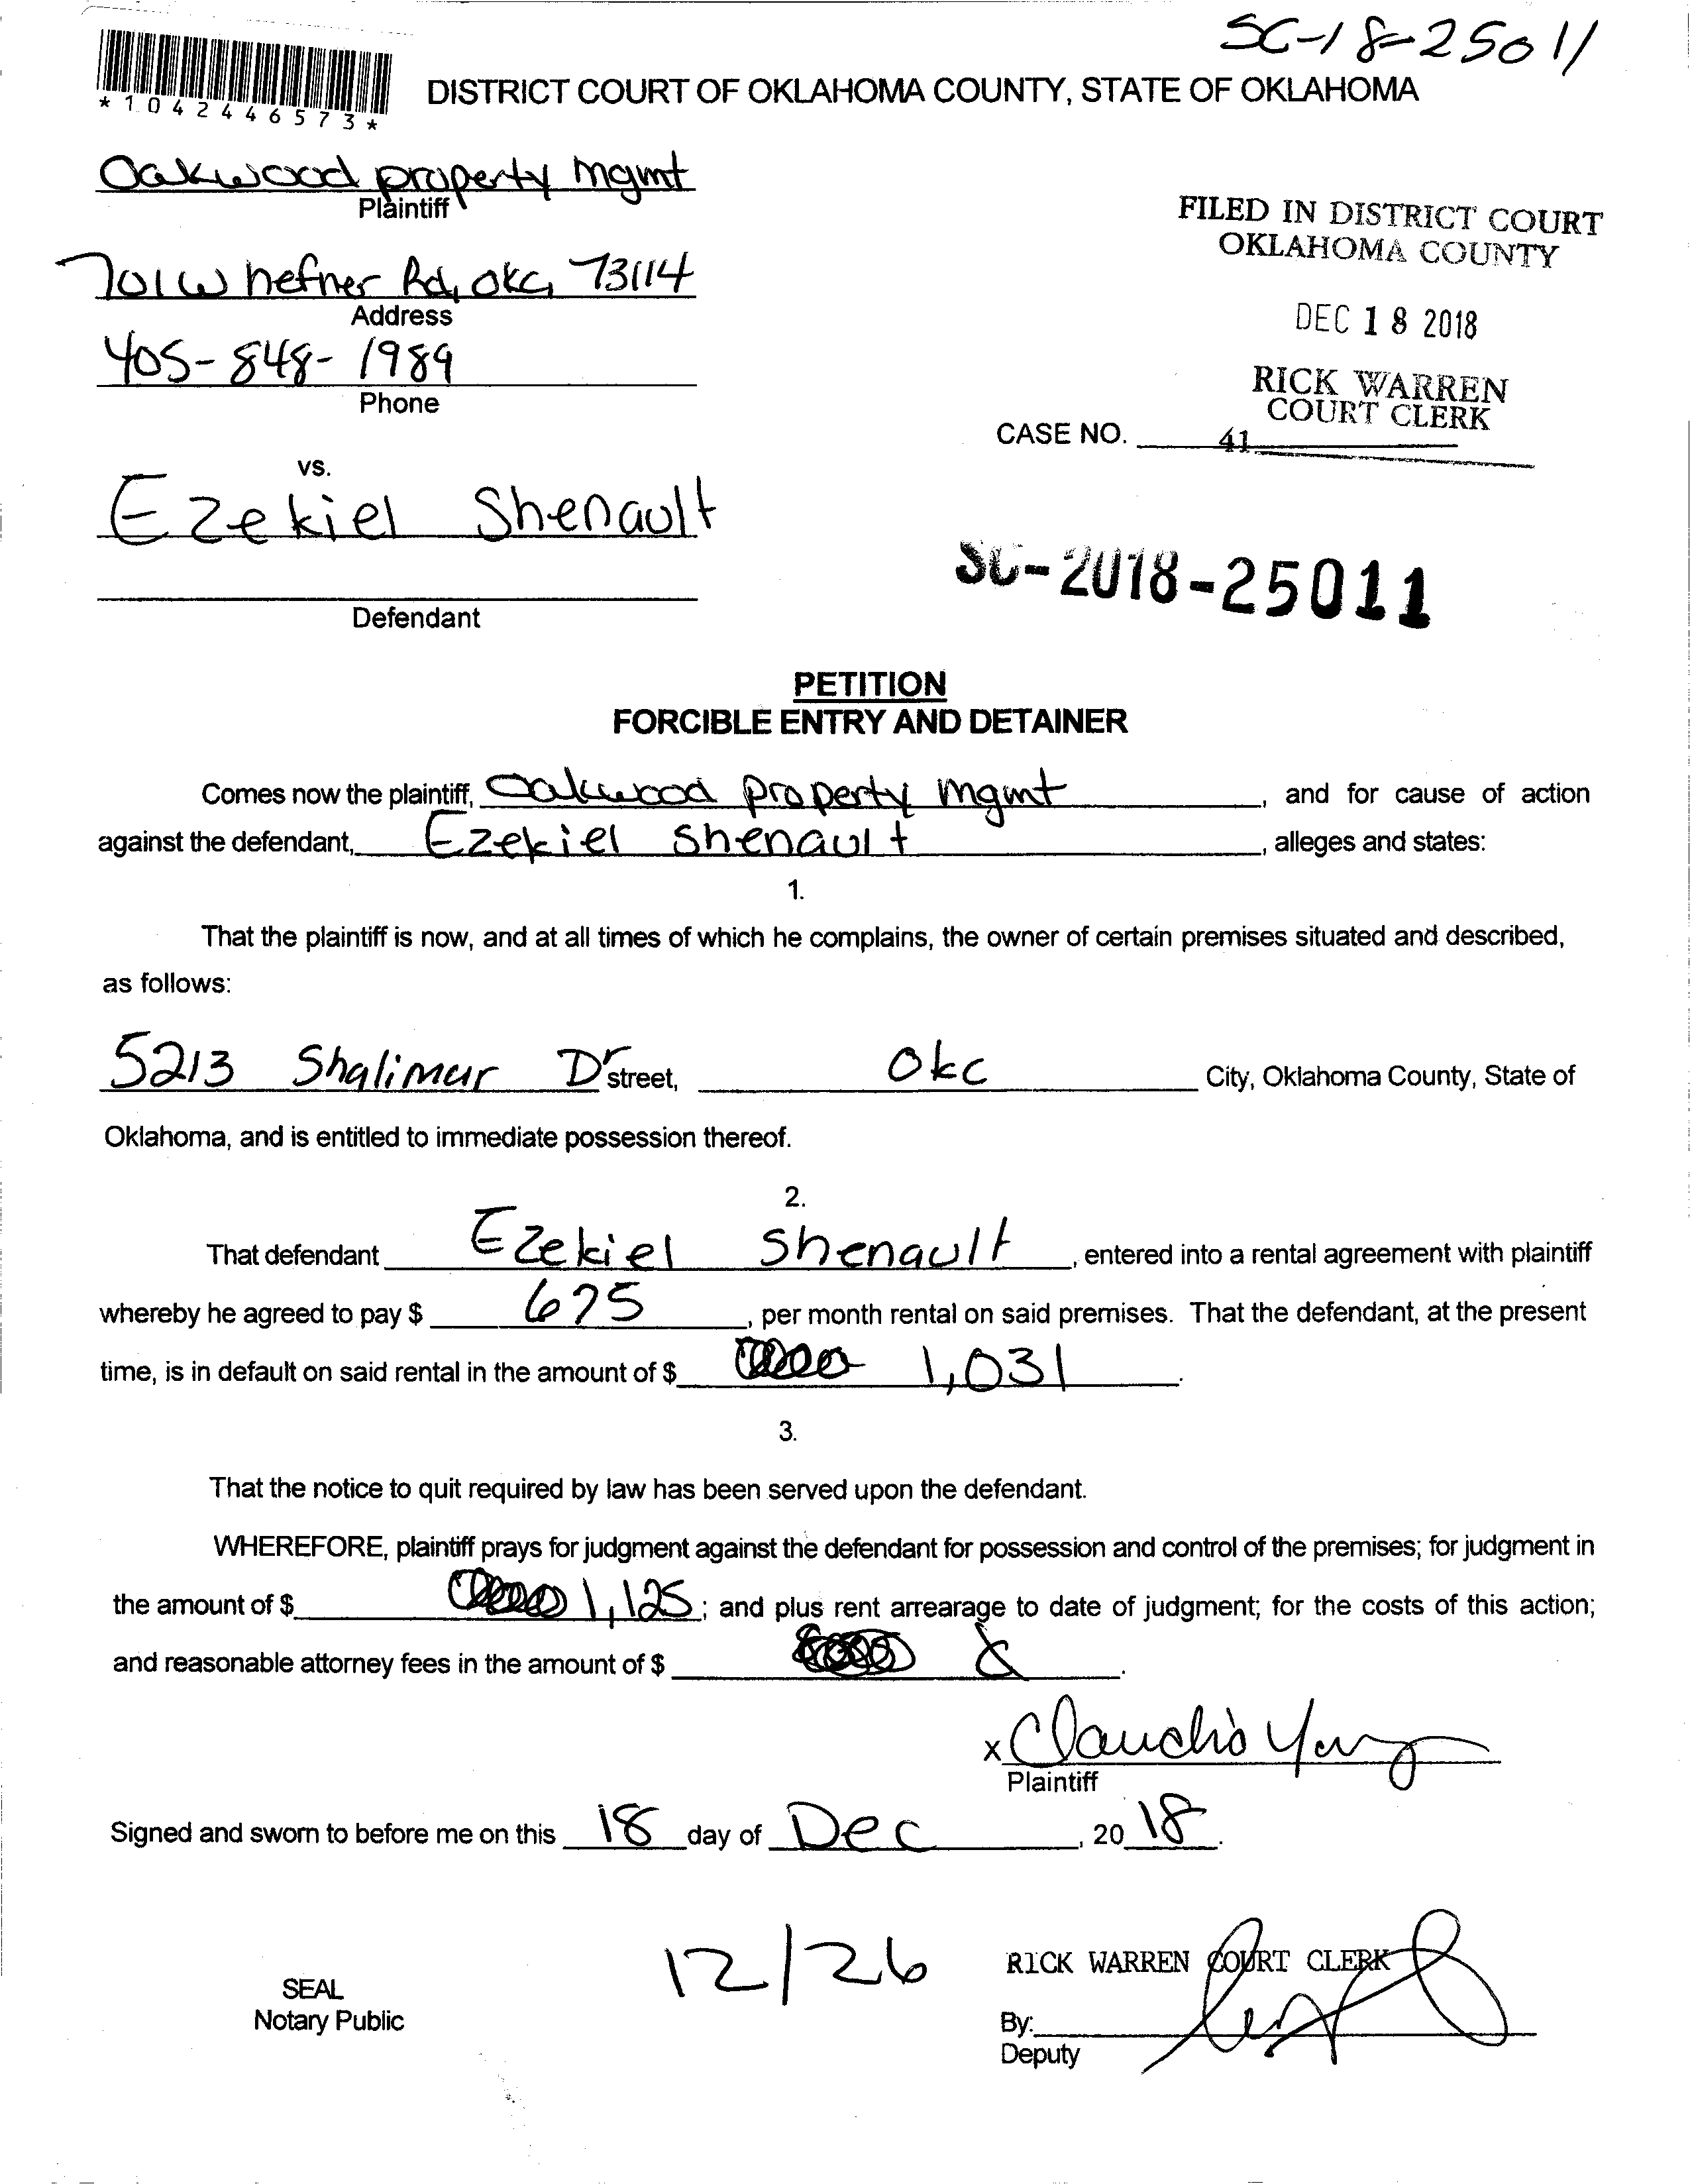 SC-18-25011
*1042446573*
DISTRICT COURT OF OKLAHOMA COUNTY, STATE OF OKLAHOMA
Oakwood property mgmt
Plaintiff
701 W hefner Rd, okc, 73114
Address
405-848-1989
Phone
FILED IN DISTRICT COURT
OKLAHOMA COUNTY
DEC 18 2018
RICK WARREN
COURT CLERK
CASE NO. 41
vs.
Ezekiel Shenault
Defendant
SC-2018-25011
PETITION
FORCIBLE ENTRY AND DETAINER
Comes now the plaintiff, Oakwood property mgmt, and for cause of action
against the defendant, Ezekiel Shenault, alleges and states:
1.
That the plaintiff is now, and at all times of which he complains, the owner of certain premises situated and described,
as follows:
5213 Shalimar Dr street, Okc City, Oklahoma County, State of
Oklahoma, and is entitled to immediate possession thereof.
2.
That defendant Ezekiel Shenault, entered into a rental agreement with plaintiff
whereby he agreed to pay $ 675, per month rental on said premises. That the defendant, at the present
time, is in default on said rental in the amount of $ 1,031.
3.
That the notice to quit required by law has been served upon the defendant.
WHEREFORE, plaintiff prays for judgment against the defendant for possession and control of the premises; for judgment in
the amount of $ 1,125; and plus rent arrearage to date of judgment; for the costs of this action;
and reasonable attorney fees in the amount of $ .
x Claudio
Plaintiff
Signed and sworn to before me on this 18 day of Dec, 20 18.
12/26
RICK WARREN COURT CLERK
SEAL
Notary Public
By:
Deputy